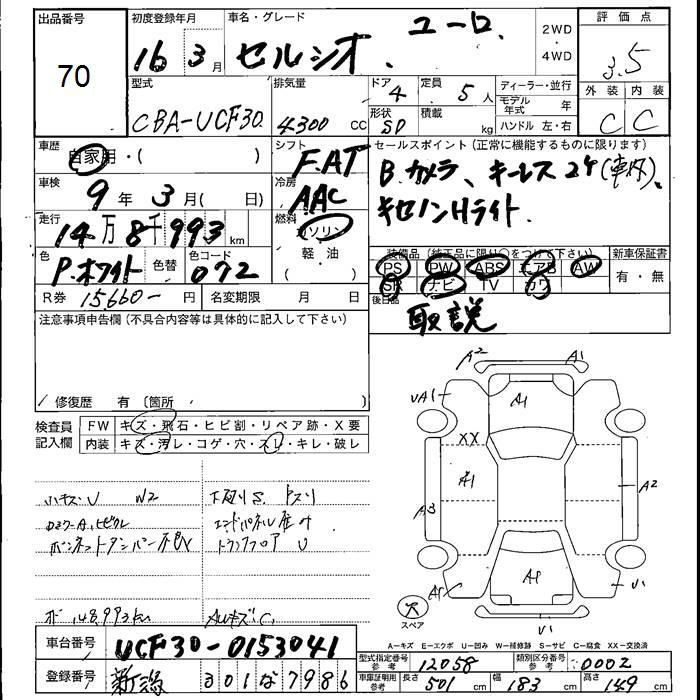 出品番号
70
初度登録年月
16 3月
車名・グレード
セルシオ ユーロ
2WD
・
4WD
評価点
3.5
外装 内装
C C
型式
CBA-UCF30
排気量
4300 CC
ドア 4
形状 SD
定員 5人
積載 kg
ディーラー・並行
モデル年式 年
ハンドル 左・右
車歴
自家用・( )
シフト
F.AT
セールスポイント(正常に機能するものに限ります)
B.カメラ、キーレス2ケ(車内)、
キセノンHライト
車検
9年3月( 日)
冷房
AAC
走行
14万8千993km
燃料
ガソリン
軽・油
( )
色
P.ホワイト
色替
色コード
072
装備品(純正品に限り○をつけて下さい)
PS PW ABS エアB AW
SR ナビ TV カワ
新車保証書
有・無
R券 15660- 円
名変期限 月 日
後日品
取説
注意事項申告欄(不具合内容等は具体的に記入して下さい)
修復歴 有〔箇所 〕
検査員
記入欄
FW キズ・飛石・ヒビ割・リペア跡・X要
内装 キズ・汚レ・コゲ・穴・スレ・キレ・破レ
小キズ・U W2
下廻りS.
ボンネットダンパー不良
エンドパネル
トランクフロア U
148,993km
AWキズ、C
A2 A1
UA1 A1
XX
A1 A2
A3
A1 U1
U1
スペア
A-キズ E-エクボ U-凹み W-補修跡 S-サビ C-腐食 XX-交換済
車台番号
UCF30-0153041
登録番号
新潟 301な7986
型式指定番号
参考 12058
類別区分番号
参考 0002
車庫証明用
参考
長さ 501cm
幅 183cm
高さ 149cm